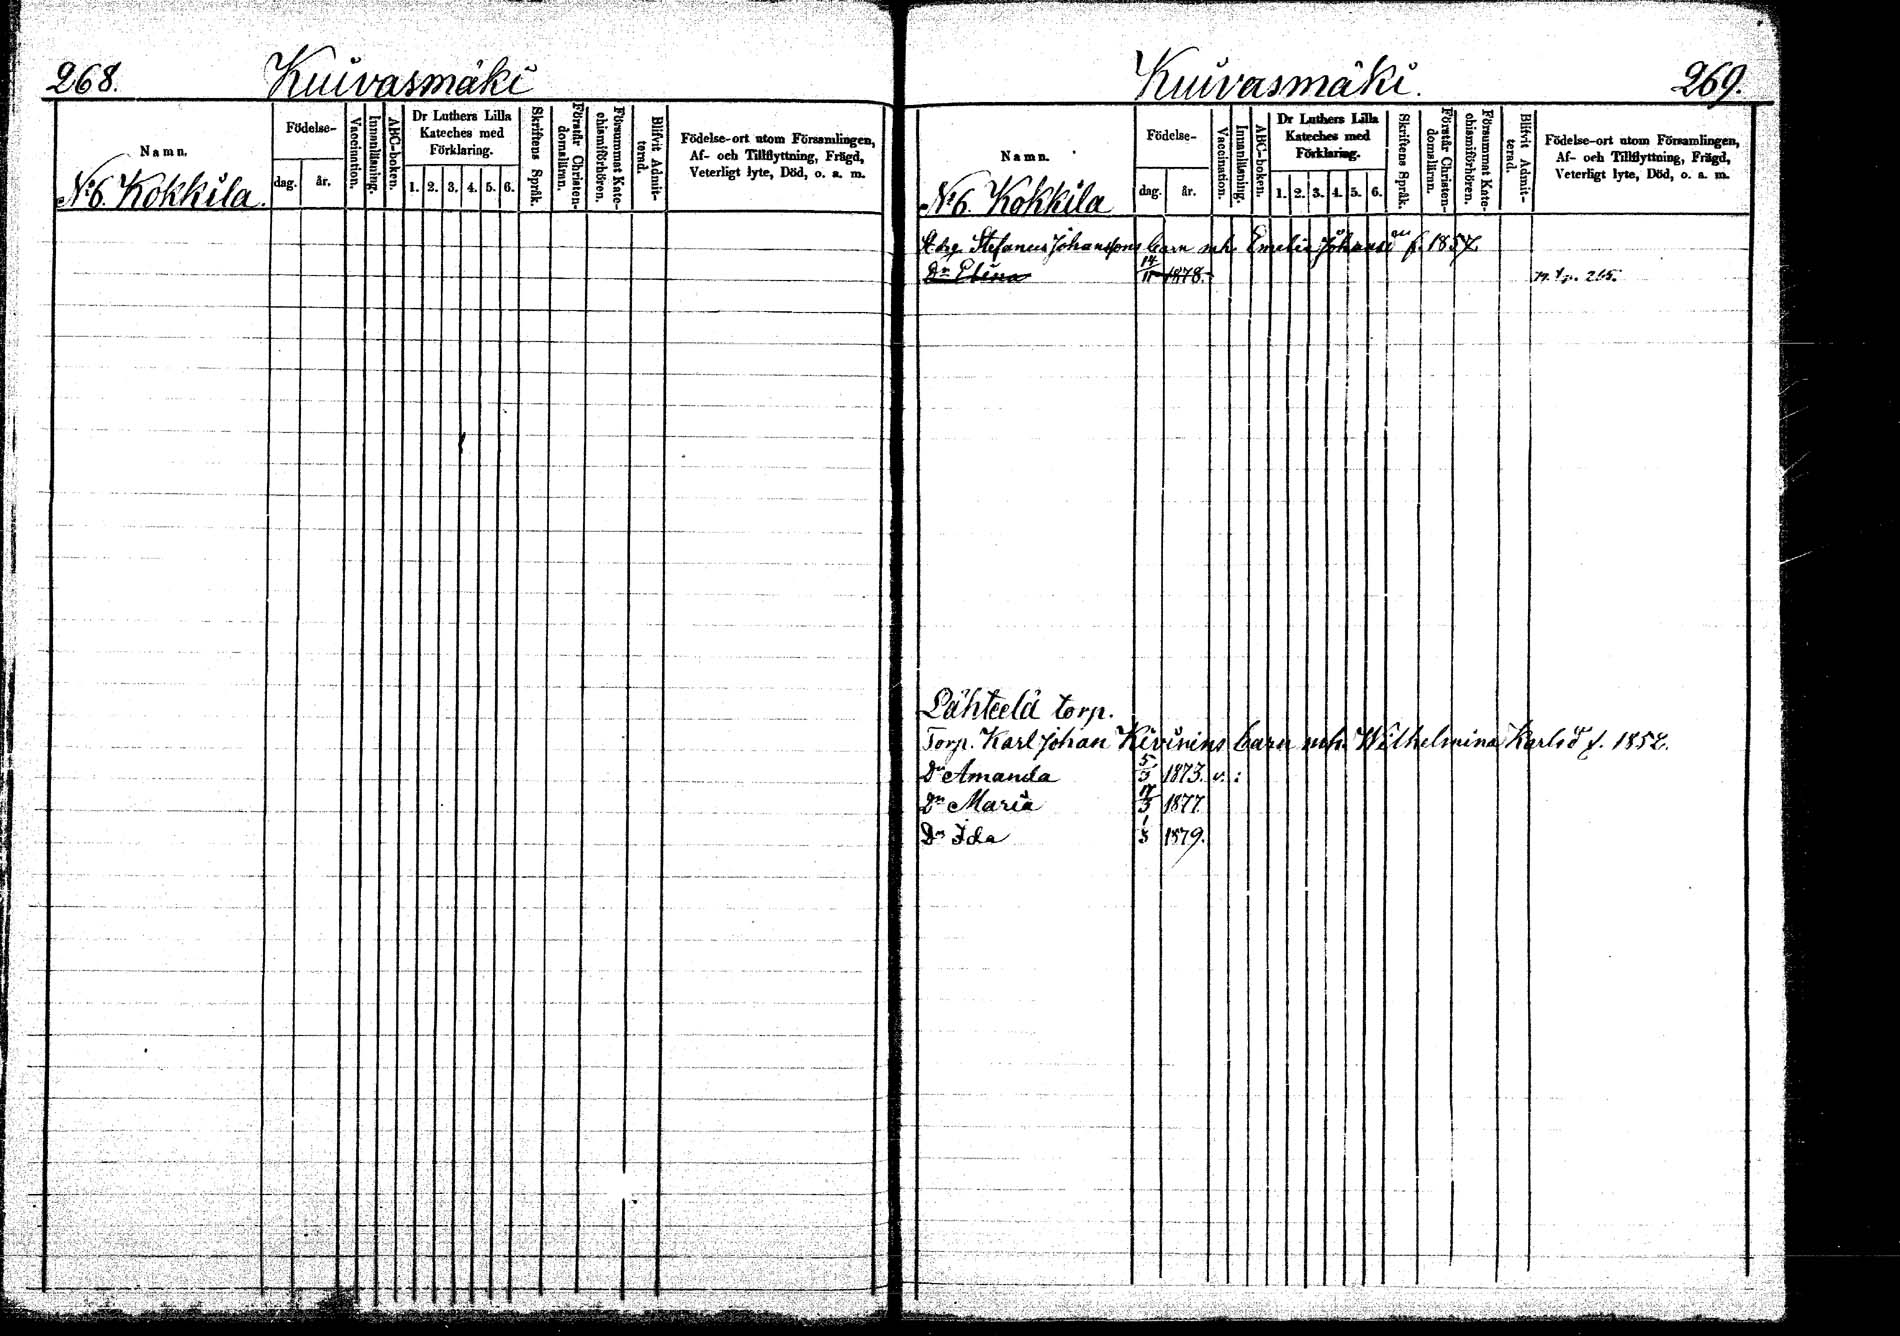 268. Kuivasmäki
Namn.
Födelse-
dag. år.
Vaccination.
Innanläsning.
ABC-boken.
Dr Luthers Lilla
Kateches med
Förklaring.
1. 2. 3. 4. 5. 6.
Skriftens Språk.
Förstår Christen-
domsläran.
Försummat Kate-
chismiförhören.
Blifvit Admit-
terad.
Födelse-ort utom Församlingen,
Af- och Tillflyttning, Frägd,
Veterligt lyte, Död, o. a. m.
No 6. Kokkila.
Kuivasmäki. 269.
Namn.
Födelse-
dag. år.
Vaccination.
Innanläsning.
ABC-boken.
Dr Luthers Lilla
Kateches med
Förklaring.
1. 2. 3. 4. 5. 6.
Skriftens Språk.
Förstår Christen-
domsläran.
Försummat Kate-
chismiförhören.
Blifvit Admit-
terad.
Födelse-ort utom Församlingen,
Af- och Tillflyttning, Frägd,
Veterligt lyte, Död, o. a. m.
No 6. Kokkila
Stefanus Johanssons barn mh. Emelia f. 1857.
Dr Elina 14/11 1878. 265.
Lähteelä torp.
Torp. Karl Johan Kivinins barn mh. Wilhelmina Karlsd f. 1852.
Dr Amanda 5/3 1873. v. :
Dr Maria 17/3 1877
Dr Ida 1/3 1879.